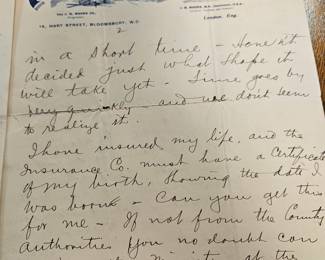 THE J. R. WOODS CO.
15, HART STREET, BLOOMSBURY, W.C.
London, Eng.
2
in a short time – Haven't
decided just what shape it
will take yet – Time goes by
very quickly and we don't seem
to realize it.
I have insured my life, and the
Insurance Co. must have a Certificate
of my birth, showing the date I
was born – Can you get this
for me – If not from the County
authorities you no doubt can
at the